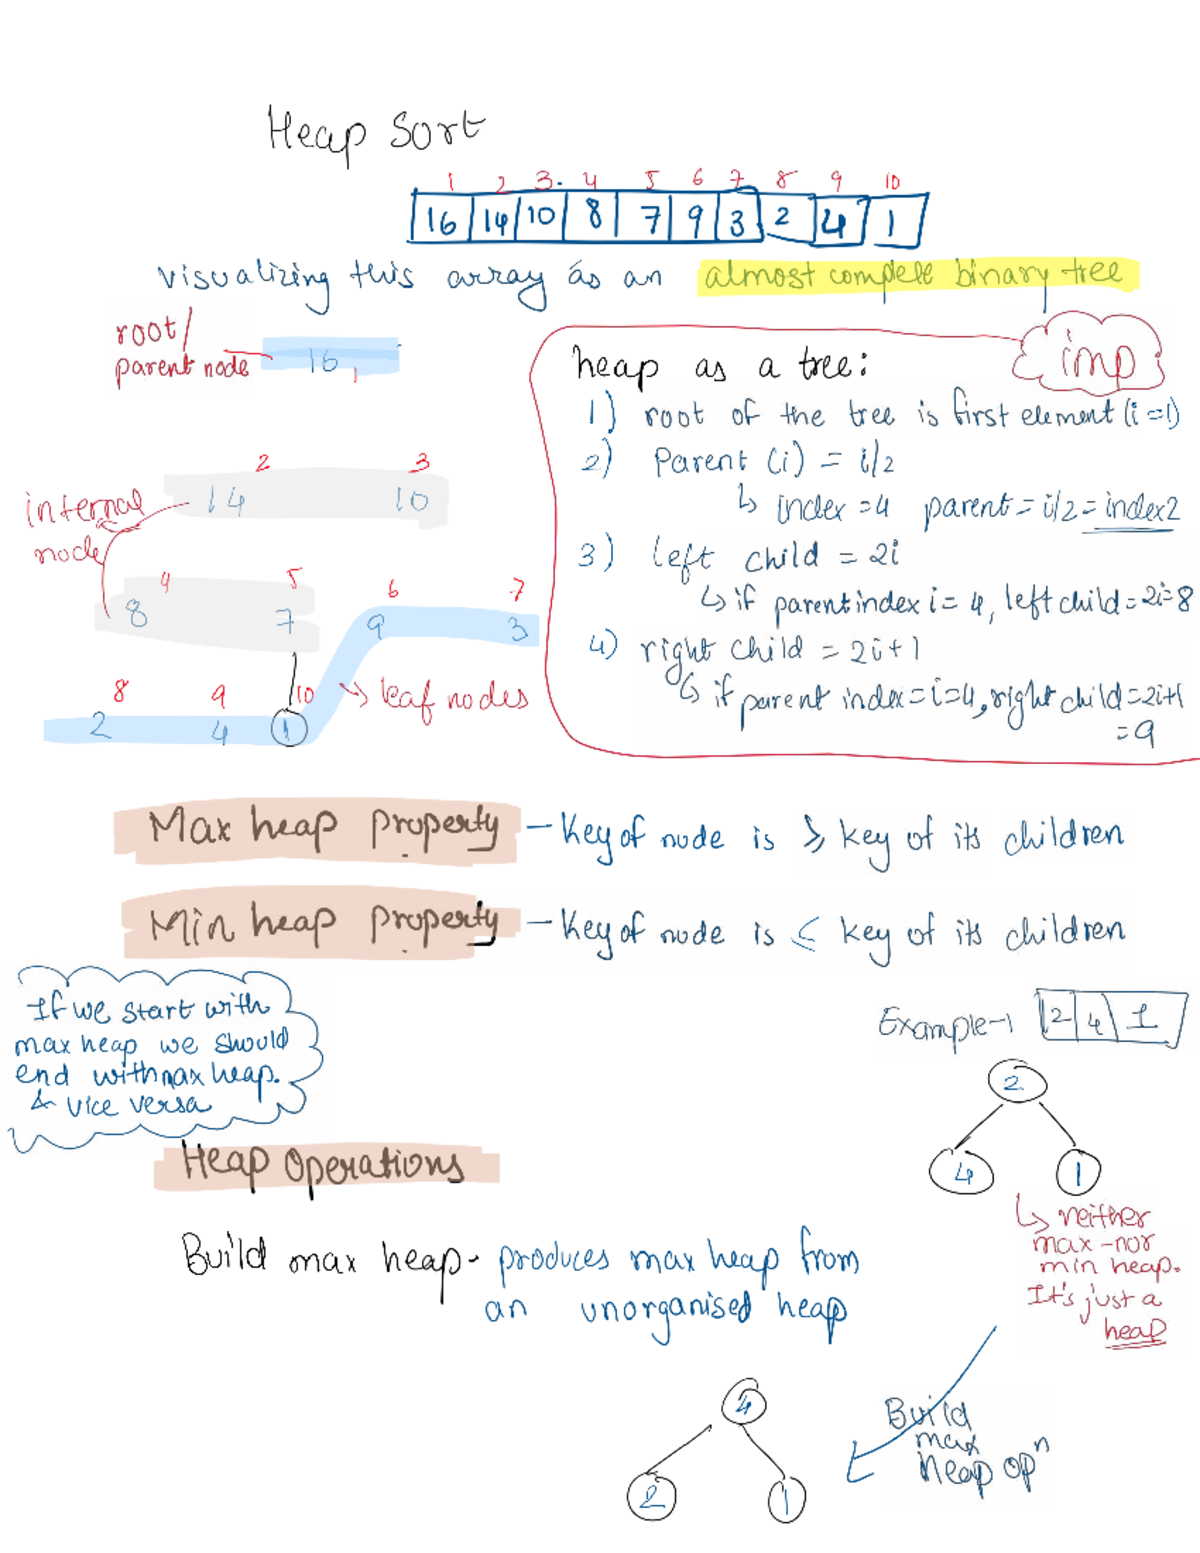 Heap Sort
1 2 3. 4 5 6 7 8 9 10
16 14 10 8 7 9 3 2 4 1
visualizing this array as an almost complete binary tree
root/
parent node
16
1
imp
heap as a tree:
1) root of the tree is first element (i=1)
2) Parent (i) = i/2
↳ index = 4 parent = i/2 = index2
3) left child = 2i
↳ if parent index i = 4, left child = 2i = 8
4) right child = 2i+1
↳ if parent index = i = 4, right child = 2i+1
= 9
2 3
14 10
internal
node
4 5 6 7
8 7 9 3
8 9 10 → leaf nodes
2 4 1
Max heap property - Key of node is ≥ key of its children
Min heap property - Key of node is ≤ key of its children
If we start with
max heap we should
end with max heap.
& vice versa
Example-1 2 4 1
2
4 1
↳ neither
max -nor
min heap.
It's just a
heap
Heap Operations
Build max heap - produces max heap from
an unorganised heap
Build
max
heap opn
4
2 1